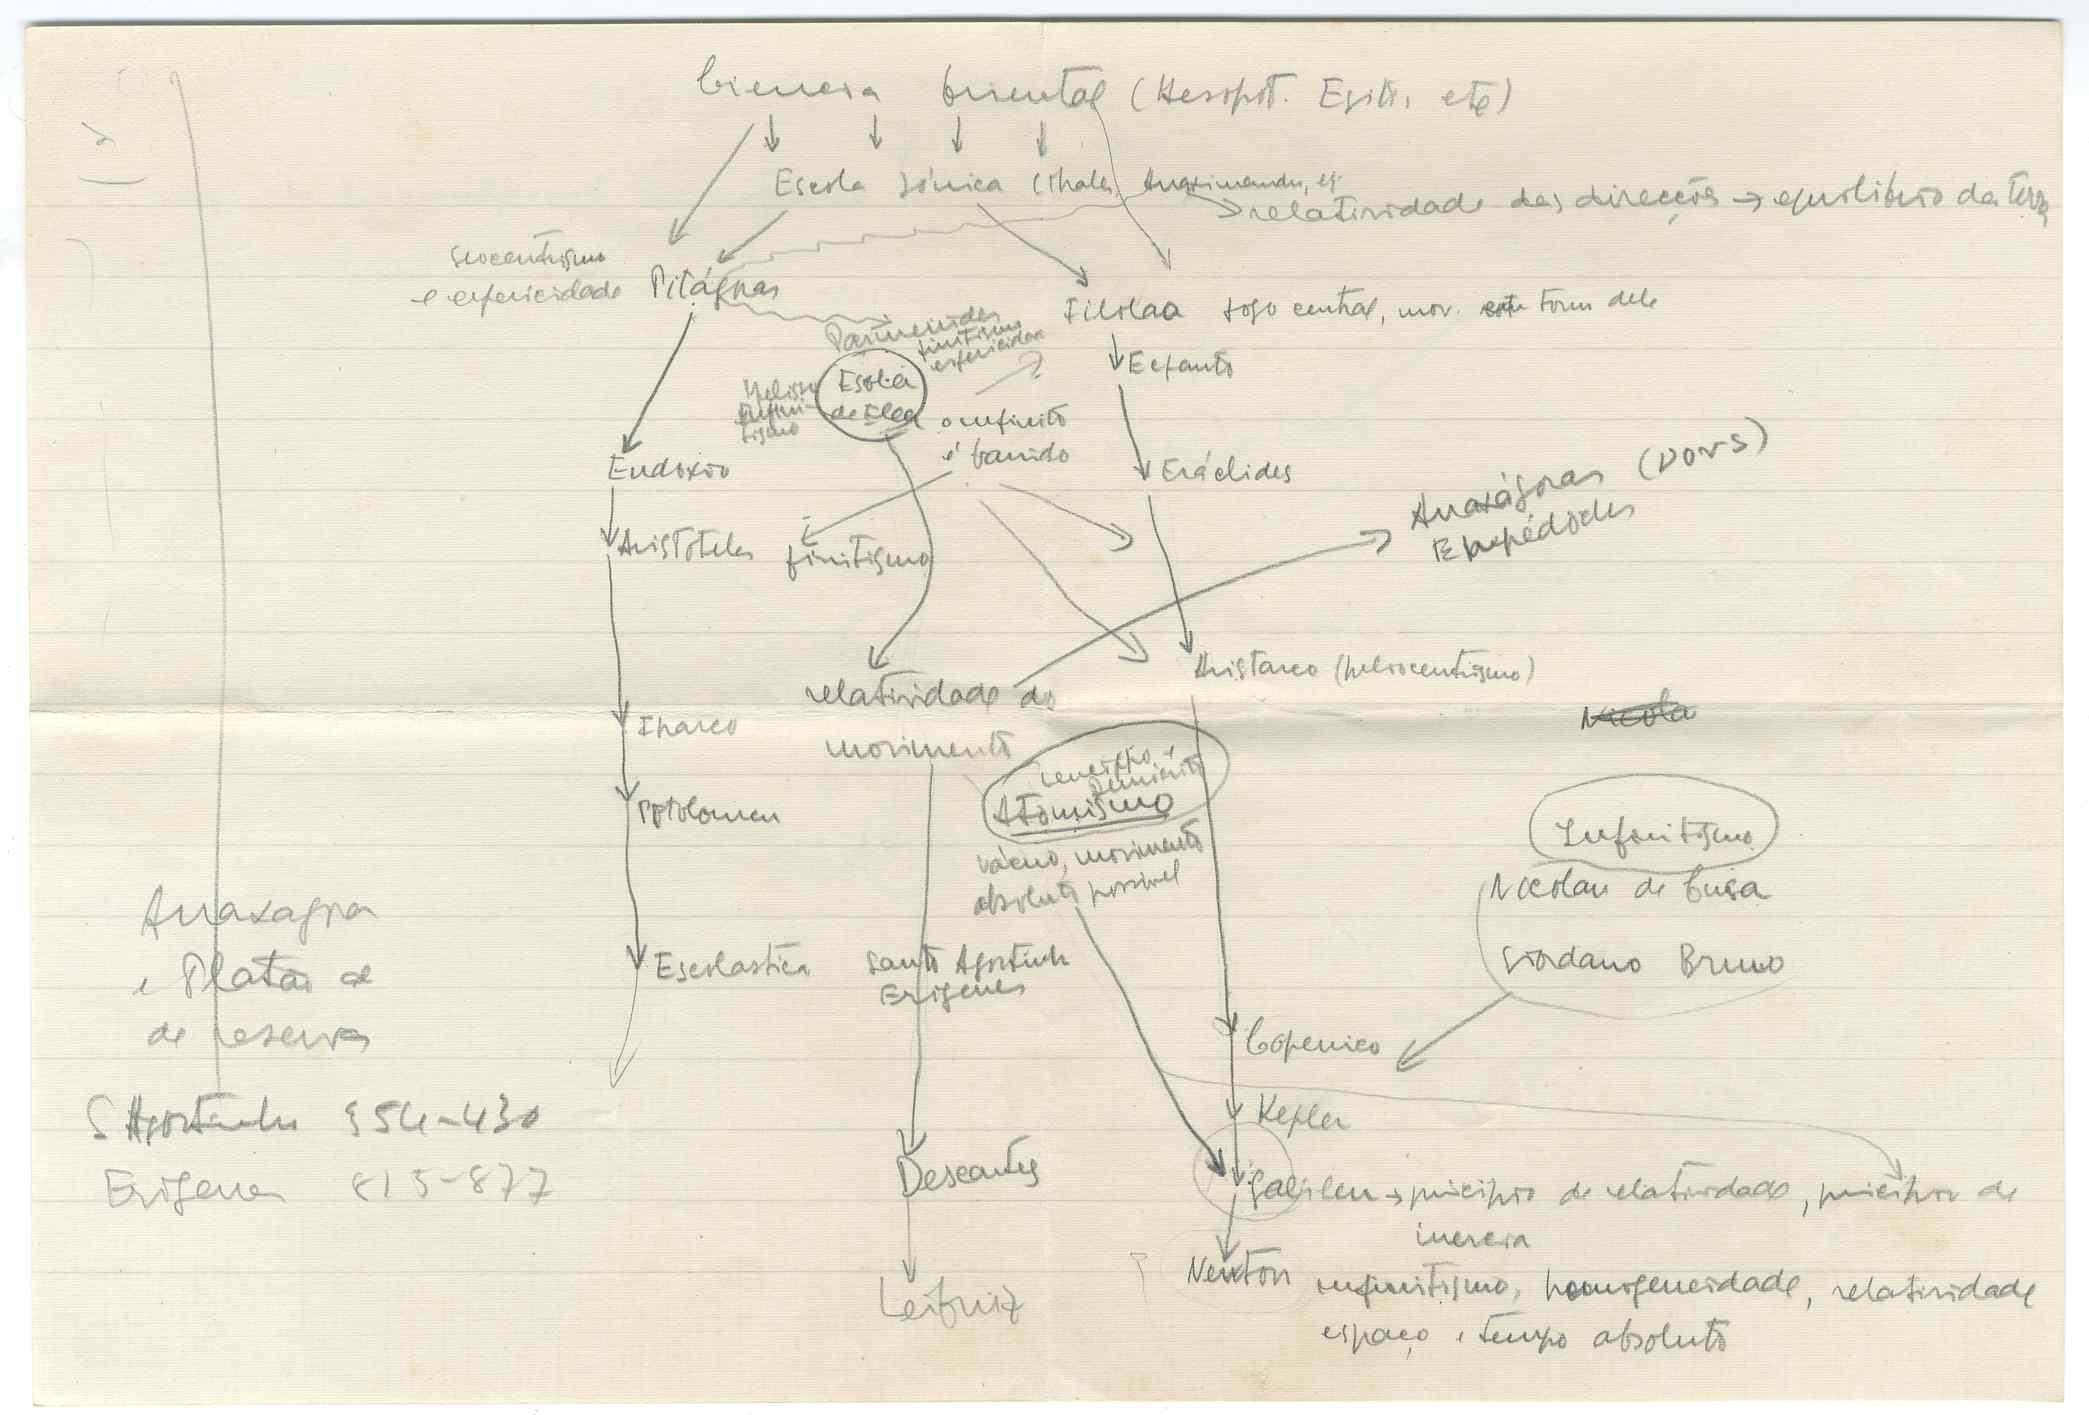 Ciencia Oriental (Mesopot. Egito, etc)
Escola Jónica (Thales, Anaximandro, etc
relatividade das direcções → equilíbrio da terra
geocentrismo
e esfericidade
Pitágoras
Filolao fogo central, mov. em torno dele
Parmenides
finitismo
esfericidade
Melisso
Infini-
tismo
Escola
de Elea
Ecfanto
o infinito
é banido
Eudoxio
Eráclides
Anaxágoras (νους)
Empédocles
Aristoteles
finitismo
relatividade do
movimento
Aristarco (heliocentrismo)
Nicola
Iparco
Leucippo,
Demócrito
Atomismo
Ptolomeu
vácuo, movimento
absoluto possivel
Infinitismo
Nicolau de Cusa
Giordano Bruno
Anaxagora
e Platão de
de reserva
Escolastica
Santo Agostinho
Erigenes
Copernico
S Agostinho 354-430
Kepler
Erigena 815-877
Descartes
Galileu → principio de relatividade, principio de
inercia
Newton infinitismo, homogeneidade, relatividade
espaço e tempo absoluto
Leibniz